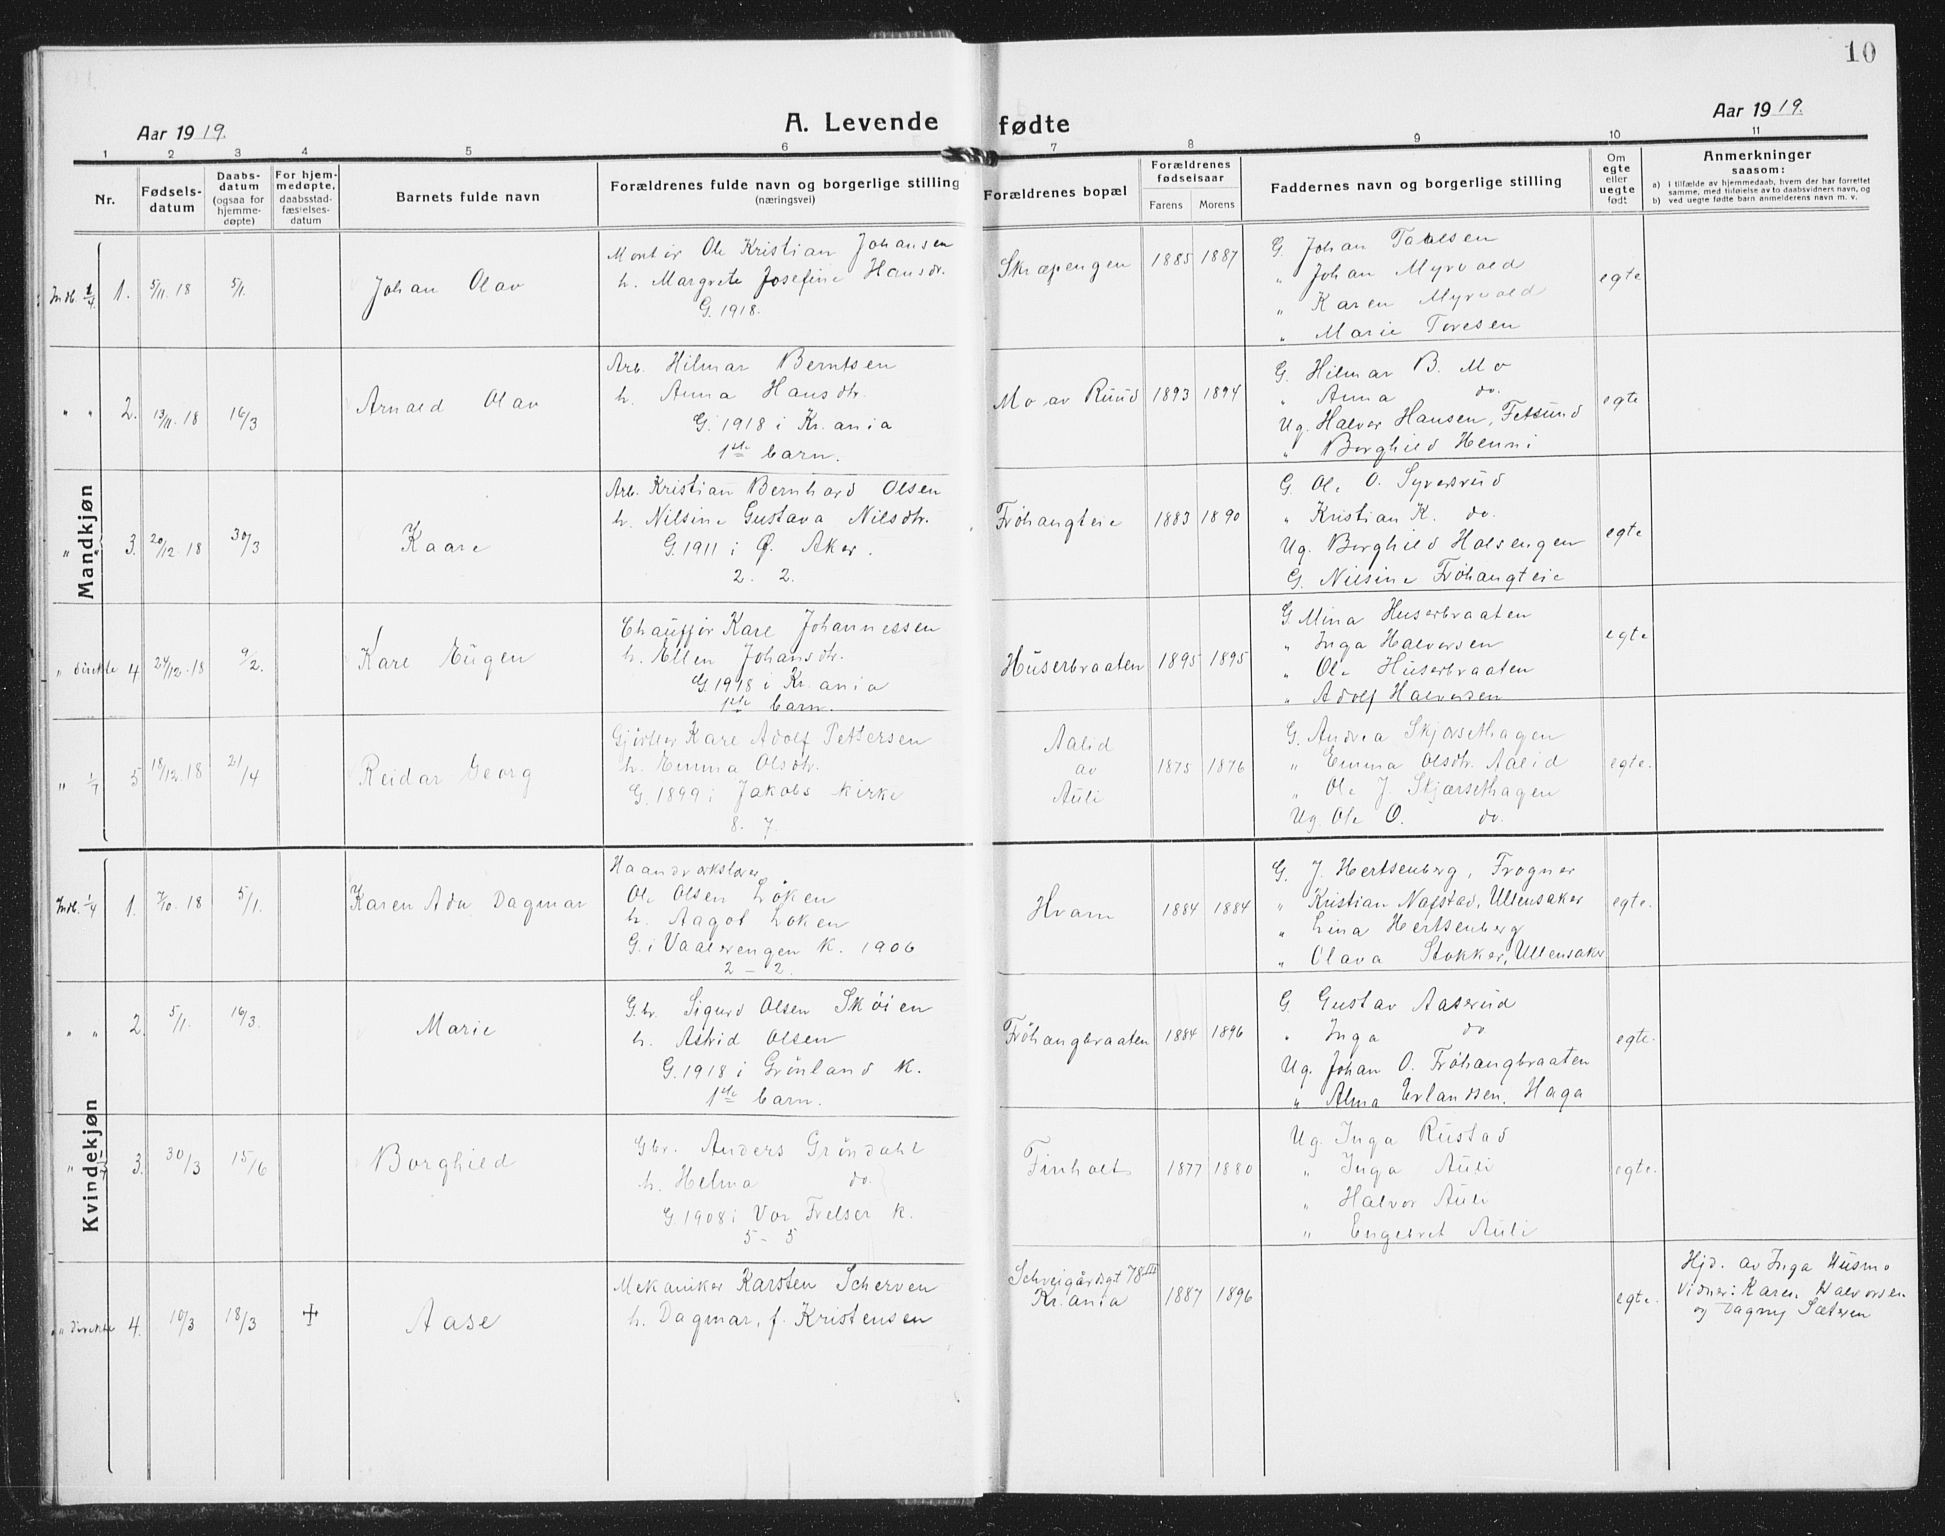 10
Aar 1919.
A. Levende fødte
Aar 1919.
1 2 3 4 5 6 7 8 9 10 11
Nr.
Fødselsdatum
Daabsdatum (ogsaa for hjemmedøpte)
For hjemmedøpte, daabsstadfæstelsesdatum
Barnets fulde navn
Forældrenes fulde navn og borgerlige stilling (næringsvei)
Forældrenes bopæl
Forældrenes fødselsaar
Farens Morens
Faddernes navn og borgerlige stilling
Om egte eller uegte født
Anmerkninger saasom:
a) i tilfælde av hjemmedaab, hvem der har forrettet samme, med tilføielse av to daabsvidners navn, og
b) ved uegte fødte barn anmelderens navn m. v.
Mandkjøn
Indb. 1/4 1. 5/11 18 5/1. Johan Olav
Montør Ole Kristian Johansen
h. Margrete Josefine Hansdr.
G. 1918.
Skræpengen 1885 1887
G. Johan Paulsen
" Johan Myrvold
" Karen Myrvold
" Marie Toresen
egte
" " 2. 13/11.18 16/3 Arnold Olav
Arb. Hilmar Berntsen
h. Anna Hansdtr.
G. 1918 i Kr.ania
1ste barn.
Mo av Ruud 1893 1894
G. Hilmar B. Mo
" Anna do.
Ug. Halvor Hansen, Fetsund
" Borghild Henni
egte
" " 3. 20/12.18 30/3 Kaare
Arb. Kristian Bernhard Olsen
h. Nilsine Gustava Nilsdtr.
G. 1911 i Ø. Aker.
2. 2.
Frøhaugteie 1883 1890
G. Ole O. Syversrud
" Kristian K. do.
Ug. Borghild Holsengen
G. Nilsine Frøhaugteie
egte
" direkte 4 24/12.18 9/2. Karl Eugen
Chauffør Karl Johannessen
h. Ellen Johansdtr.
G. 1918 i Kr.ania
1ste barn.
Huserbraaten 1895 1895
G. Mina Huserbraaten
" Inga Halvorsen
" Ole Huserbraaten
" Adolf Halvorsen
egte
" 1/7 5 18/12.18 21/4 Reidar Georg
Gjørtler Karl Adolf Pettersen
h. Emma Olsdtr.
G. 1899 i Jakobs kirke
8. 7.
Aalid
av
Auli
1875 1876
G. Andrea Skjørsethagen
" Emma Olsdtr. Aalid
" Ole J. Skjærsethagen
Ug. Ole O. do.
egte.
Kvindekjøn
Indb. 1/4 1. 7/10.18 5/1. Karen Ada Dagmar
Haandverkslærer
Ole Olsen Løken
h. Aagot Løken
G. i Vaalerengen K. 1906
2 - 2.
Hvam 1884 1884
G. J. Hertsenberg, Frogner
" Kristian Nafstad, Ullensaker
" Lina Hertsenberg
" Olava Stokker, Ullensaker
egte.
" " 2. 5/1. 16/3. Marie
Gbr. Sigurd Olsen Skøien
h. Astrid Olsen
G. 1918 i Grønland K.
1ste barn.
Frøhaugbraaten 1884 1896
G. Gustav Aaserud
" Inga do
Ug. Johan O. Frøhaugbraaten
" Alma Erlandsen, Haga
egte.
" 1/7 3. 30/3 15/6 Borghild
Gbr. Anders Grøndahl
h. Helma do.
G. 1908 i Vor Frelser K.
5 - 5
Finholt 1877 1880
Ug. Inga Rustad
" Inga Auli
" Halvor Auli
" Engebret Auli
egte.
" direkte 4. 10/3 18/3 + Aase
Mekaniker Karsten Scherven
h. Dagmar, f. Kristensen
Schveigårdsgt 78 III
Kr.ania
1887 1896
egte.
Hjd. av Inga Husmo
Vidner: Karen Halvorsen
og Dagny Sæteren